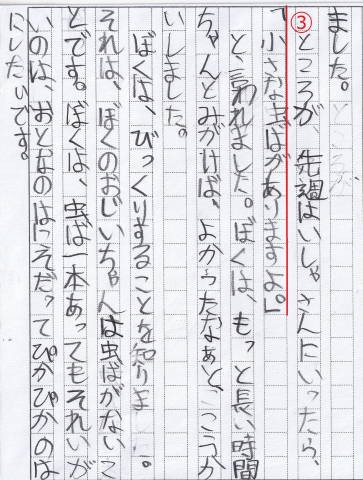 ました。
③ところが、先週はいしゃさんにいったら、
「小さな虫ばがありますよ。」
と、言われました。ぼくは、もっと長い時間
ちゃんとみがけば、よかったなあと、こうか
いしました。
ぼくは、びっくりすることを知りま
それは、ぼくのおじいちゃんは虫ばがないこ
とです。ぼくは、虫ば一本あってもそれいが
いのは、おとなのはにそだってぴかぴかのは
にしたいです。